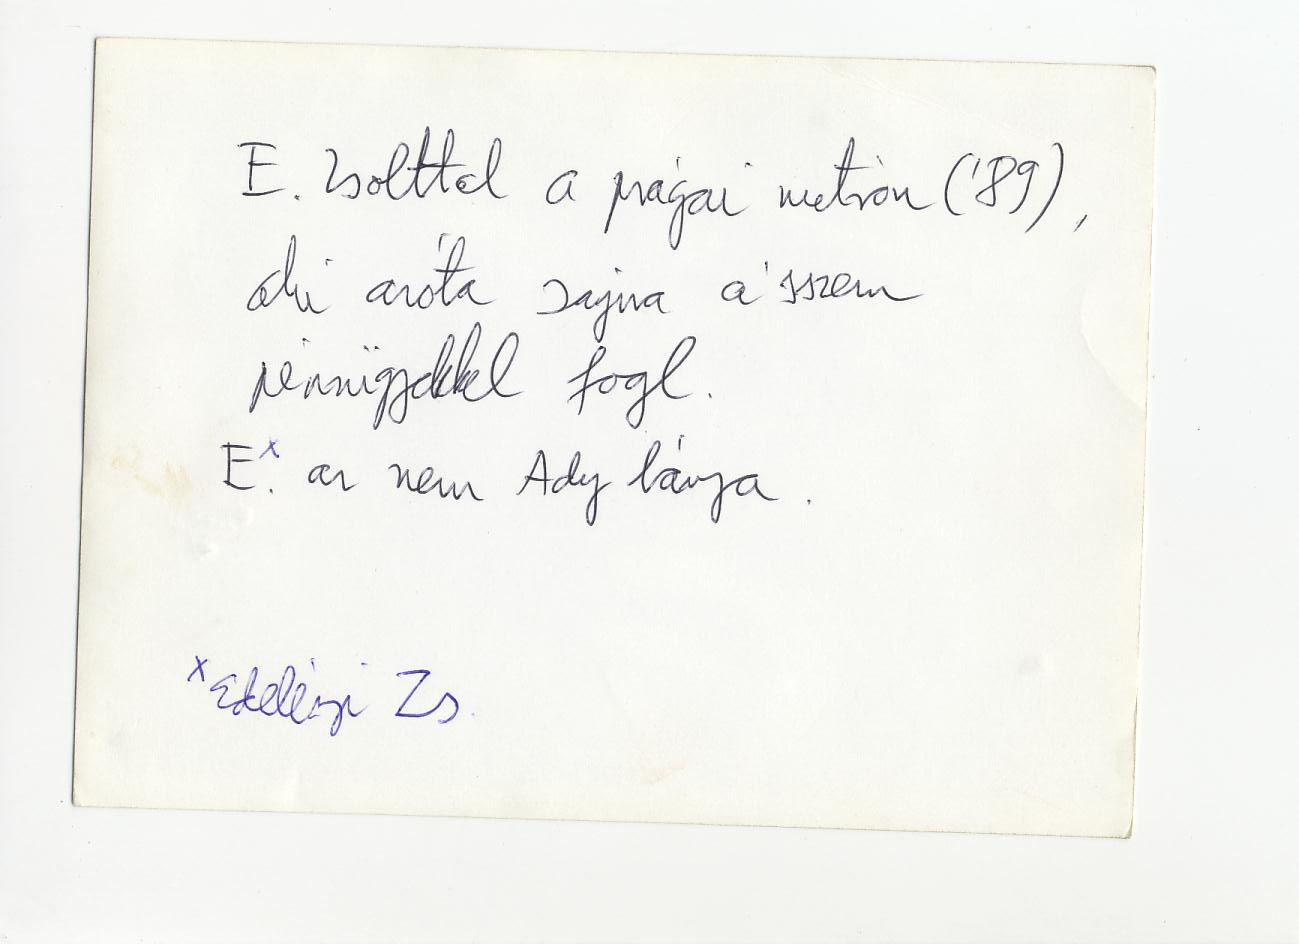 E. Zsolttal a prágai metrón ('89),
aki azóta sajna a'sszem
pénzügyekkel fogl.
E.ˣ az nem Ady lánya.
ˣ Edelényi Zs.